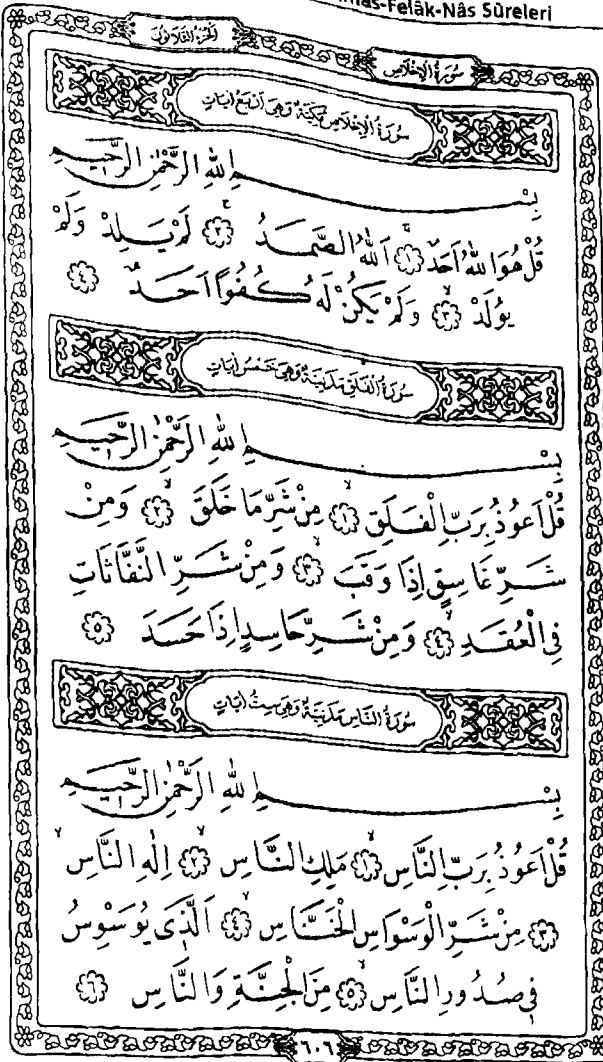 -Felâk-Nâs Sûreleri
سُورَةُ الْاِخْلَاصِ
اَلْجُزْءُ الثَّلَاثُونَ
سُورَةُ الْاِخْلَاصِ مَكِّيَّةٌ وَهِيَ اَرْبَعُ اٰيَاتٍ
بِسْمِ اللّٰهِ الرَّحْمٰنِ الرَّحِيمِ
قُلْ هُوَ اللّٰهُ اَحَدٌ ﴿١﴾ اَللّٰهُ الصَّمَدُ ﴿٢﴾ لَمْ يَلِدْ وَلَمْ
يُولَدْ ﴿٣﴾ وَلَمْ يَكُنْ لَهُ كُفُوًا اَحَدٌ ﴿٤﴾
سُورَةُ الْفَلَقِ مَدَنِيَّةٌ وَهِيَ خَمْسُ اٰيَاتٍ
بِسْمِ اللّٰهِ الرَّحْمٰنِ الرَّحِيمِ
قُلْ اَعُوذُ بِرَبِّ الْفَلَقِ ﴿١﴾ مِنْ شَرِّ مَا خَلَقَ ﴿٢﴾ وَمِنْ
شَرِّ غَاسِقٍ اِذَا وَقَبَ ﴿٣﴾ وَمِنْ شَرِّ النَّفَّاثَاتِ
فِي الْعُقَدِ ﴿٤﴾ وَمِنْ شَرِّ حَاسِدٍ اِذَا حَسَدَ ﴿٥﴾
سُورَةُ النَّاسِ مَدَنِيَّةٌ وَهِيَ سِتُّ اٰيَاتٍ
بِسْمِ اللّٰهِ الرَّحْمٰنِ الرَّحِيمِ
قُلْ اَعُوذُ بِرَبِّ النَّاسِ ﴿١﴾ مَلِكِ النَّاسِ ﴿٢﴾ اِلٰهِ النَّاسِ
﴿٣﴾ مِنْ شَرِّ الْوَسْوَاسِ الْخَنَّاسِ ﴿٤﴾ اَلَّذِي يُوَسْوِسُ
فِي صُدُورِ النَّاسِ ﴿٥﴾ مِنَ الْجِنَّةِ وَالنَّاسِ ﴿٦﴾
٦٠٦